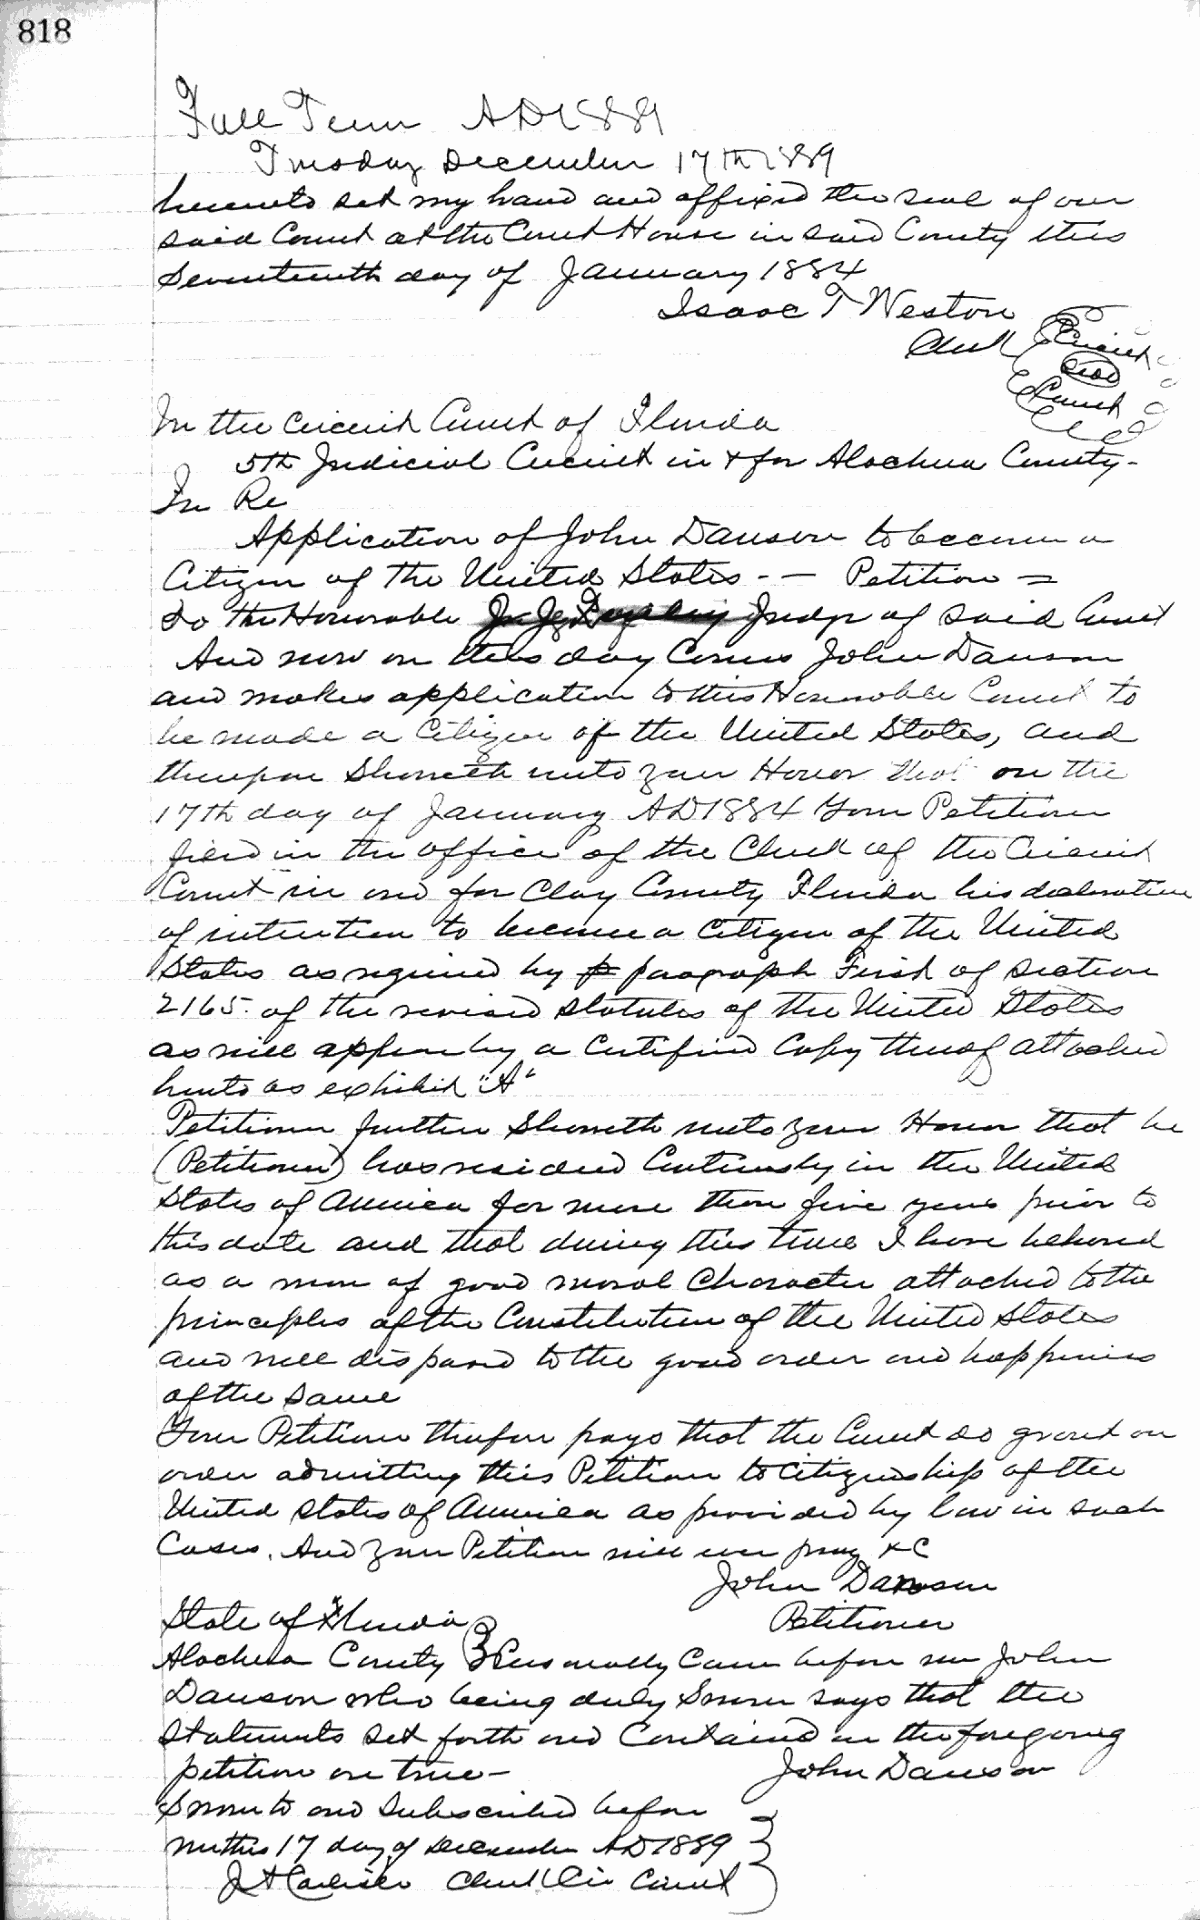 818
Fall Term AD 1889
Tuesday December 17th 1889
hereunto set my hand and affixed the seal of our
said Court at the Court House in said County this
Seventeenth day of January 1884
Isaac T Weston
Clerk Circuit
Seal
Court
In the Circuit Court of Florida
5th Judicial Circuit in & for Alachua County-
In Re
Application of John Dawson to become a
Citizen of the United States - - Petition =
To the Honorable Judge of said Court
And now on this day Comes John Dawson
and makes application to this Honorable Court to
be made a Citizen of the United States, and
thereupon Showeth unto your Honor that on the
17th day of January AD 1884 Your Petitioner
filed in the office of the Clerk of the Circuit
Court in and for Clay County Florida his declaration
of intention to become a Citizen of the United
States as required by paragraph First of section
2165. of the revised statutes of the United States
as will appear by a Certified Copy thereof attached
hereto as exhibit "A"
Petitioner further Showeth unto your Honor that he
(Petitioner) has resided Continuously in the United
States of America for more than five years prior to
this date and that during this time I have behaved
as a man of good moral Character attached to the
principles of the Constitution of the United States
and well disposed to the good order and happiness
of the same
Your Petitioner therefore prays that the Court do grant an
order admitting this Petitioner to Citizenship of the
United States of America as provided by law in such
Cases. And your Petitioner will ever pray &C
John Dawson
Petitioner
State of Florida
Alachua County } Personally Came before me John
Dawson who being duly Sworn says that the
Statements set forth and Contained in the foregoing
petition are true-
John Dawson
Sworn to and Subscribed before
me this 17 day of December AD 1889
J A Carlisle Clerk Cir Court